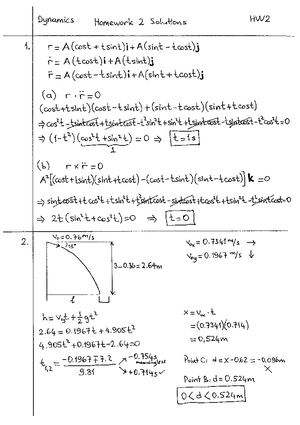 Dynamics Homework 2 Solutions HW2
1. r = A(cost + tsint)i + A(sint - tcost)j
ṙ = A(tcost)i + A(tsint)j
r̈ = A(cost - tsint)i + A(sint + tcost)j
(a) r · r̈ = 0
(cost+tsint)(cost-tsint) + (sint-tcost)(sint+tcost)
⇒ cos²t - tsintcost + tsintcost - t²sin²t + sin²t + tsintcost - tsintcost - t²cos²t = 0
⇒ (1-t²)(cos²t + sin²t) = 0 ⇒ t = 1s
1
(b) r × r̈ = 0
A²[(cost+tsint)(sint+tcost) - (cost-tsint)(sint-tcost)] k = 0
⇒ 2t(sin²t + cos²t) = 0 ⇒ t = 0
2. V₀ = 0.76 m/s
15°
3 - 0.36 = 2.64m
l
vₙₓ = 0.7341 m/s →
= 0.1967 m/s ↓
h = v t + ½gt²
2.64 = 0.1967t + 4.905t²
4.905t² + 0.1967t - 2.64 = 0
t₁,₂ = -0.1967 ∓ 7.2 / 9.81
-0.754s
+0.714s
= (0.7341)(0.714)
= 0.524m
Point C: d = x - 0.62 = -0.096m
X
Point B: d = 0.524m
0 < d < 0.524m